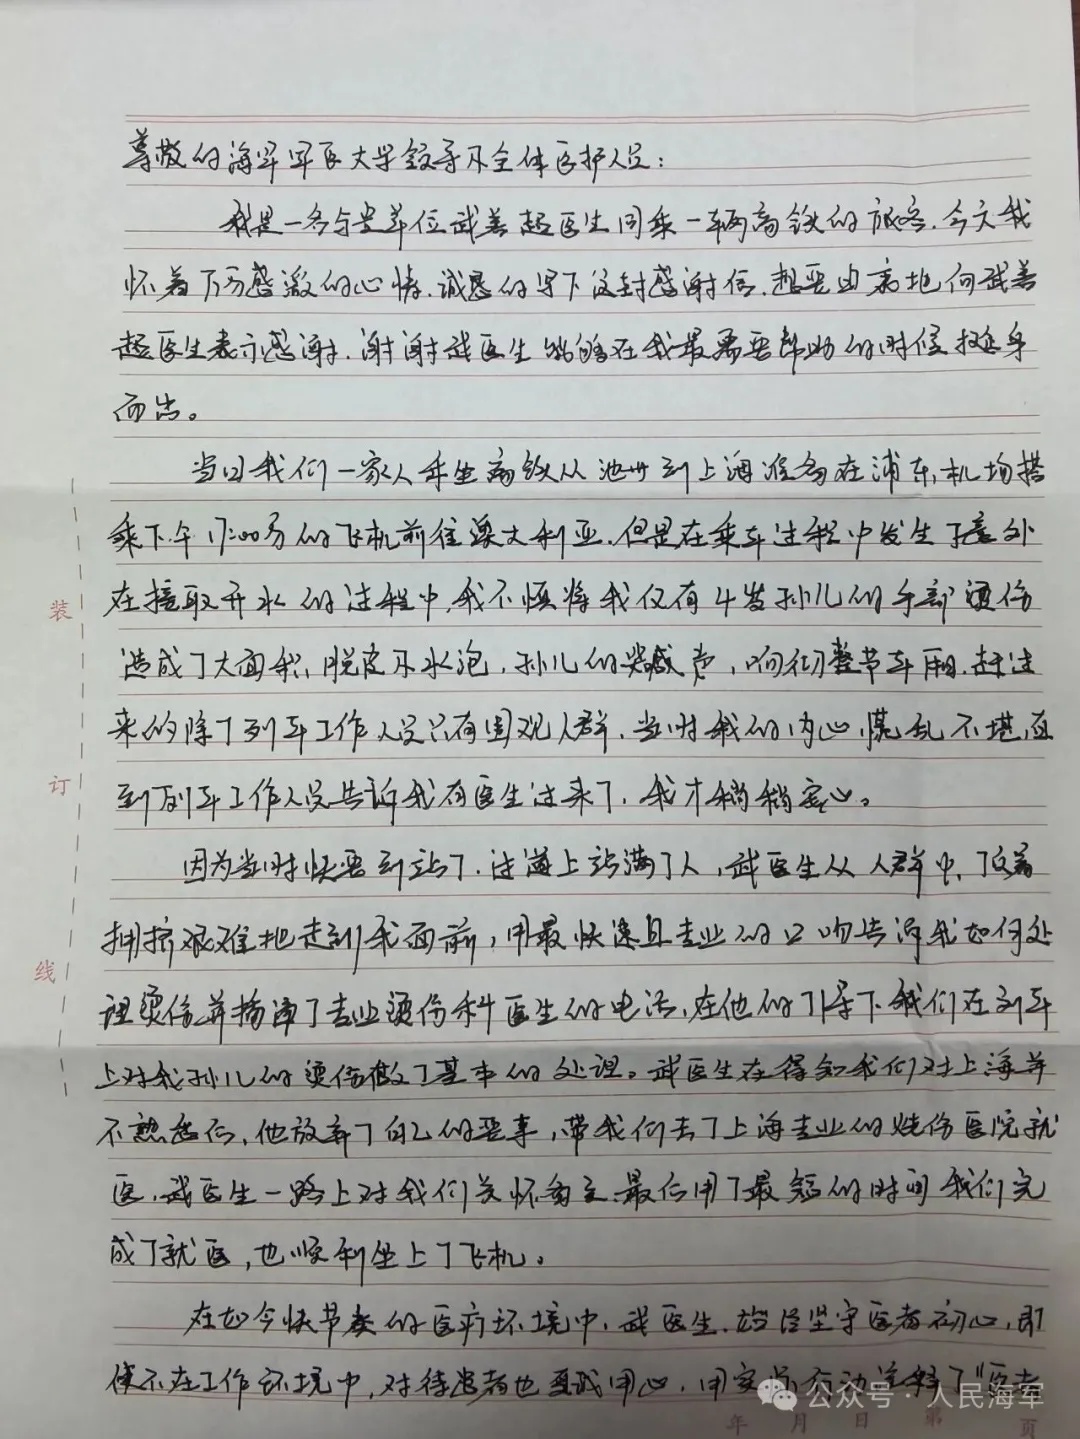 尊敬的海军军医大学领导及全体医护人员：
我是一名与贵单位武善超医生同乘一辆高铁的旅客，今天我
怀着万分感激的心情，诚恳的写下这封感谢信，想要由衷地向武善
超医生表示感谢，谢谢武医生能够在我最需要帮助的时候挺身
而出。
当日我们一家人乘坐高铁从池州到上海准备在浦东机场搭
乘下午17:00分的飞机前往澳大利亚，但是在乘车过程中发生了意外
在接取开水的过程中，我不慎将我仅有4岁孙儿的手部烫伤
造成了大面积脱皮及水泡，孙儿的哭喊声，响彻整节车厢，赶过
来的除了列车工作人员只有围观人群，当时我的内心慌乱不堪，直
到列车工作人员告诉我有医生过来了，我才稍稍安心。
因为当时快要到站了，过道上站满了人，武医生从人群中，顶着
拥挤艰难地走到我面前，用最快速且专业的口吻告诉我如何处
理烫伤并拨通了专业烫伤科医生的电话，在他的引导下我们在列车
上对我孙儿的烫伤做了基本的处理。武医生在得知我们对上海并
不熟悉后，他放弃了自己的要事，带我们去了上海专业的烧伤医院就
医，武医生一路上对我们关怀备至，最后用了最短的时间我们完
成了就医，也顺利坐上了飞机。
在如今快节奏的医疗环境中，武医生始终坚守医者初心，即
使不在工作环境中，对待患者也真诚用心，用实际行动诠释了“医者
装
订
线
年 月 日 第 页
公众号·人民海军